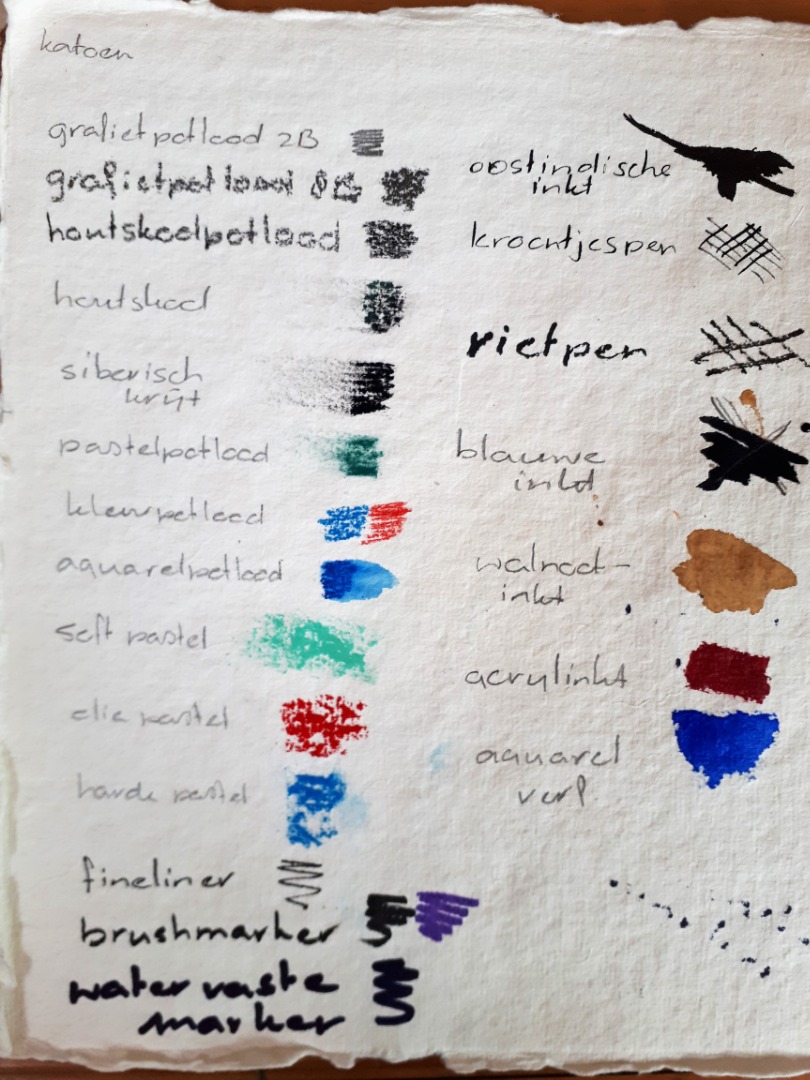 katoen
grafietpotlood 2B
grafietpotlood 8B
houtskoolpotlood
houtskool
siberisch
krijt
pastelpotlood
kleurpotlood
aquarelpotlood
soft pastel
olie pastel
harde pastel
fineliner
brushmarker
watervaste
marker
oostindische
inkt
kroontjespen
rietpen
blauwe
inkt
walnoot-
inkt
acrylinkt
aquarel
verf